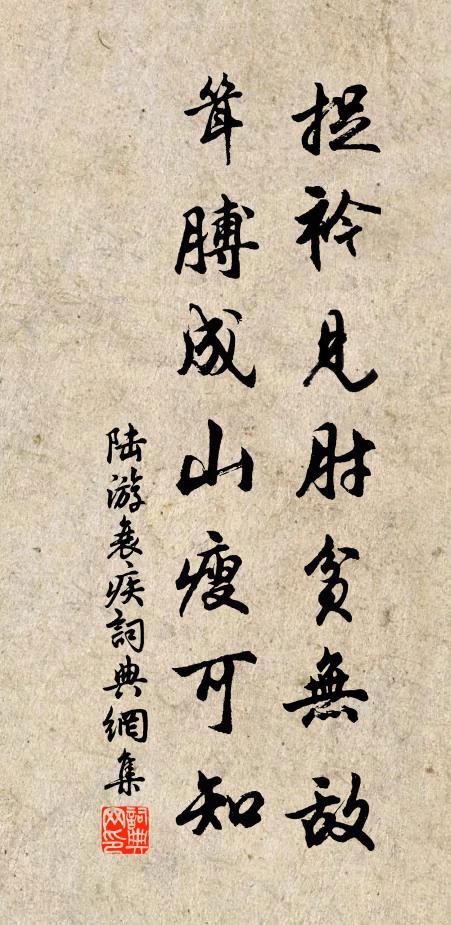 捉衿見肘貧無敵
耸膊成山瘦可知
陆游衰疾詞典網集
詞典网印